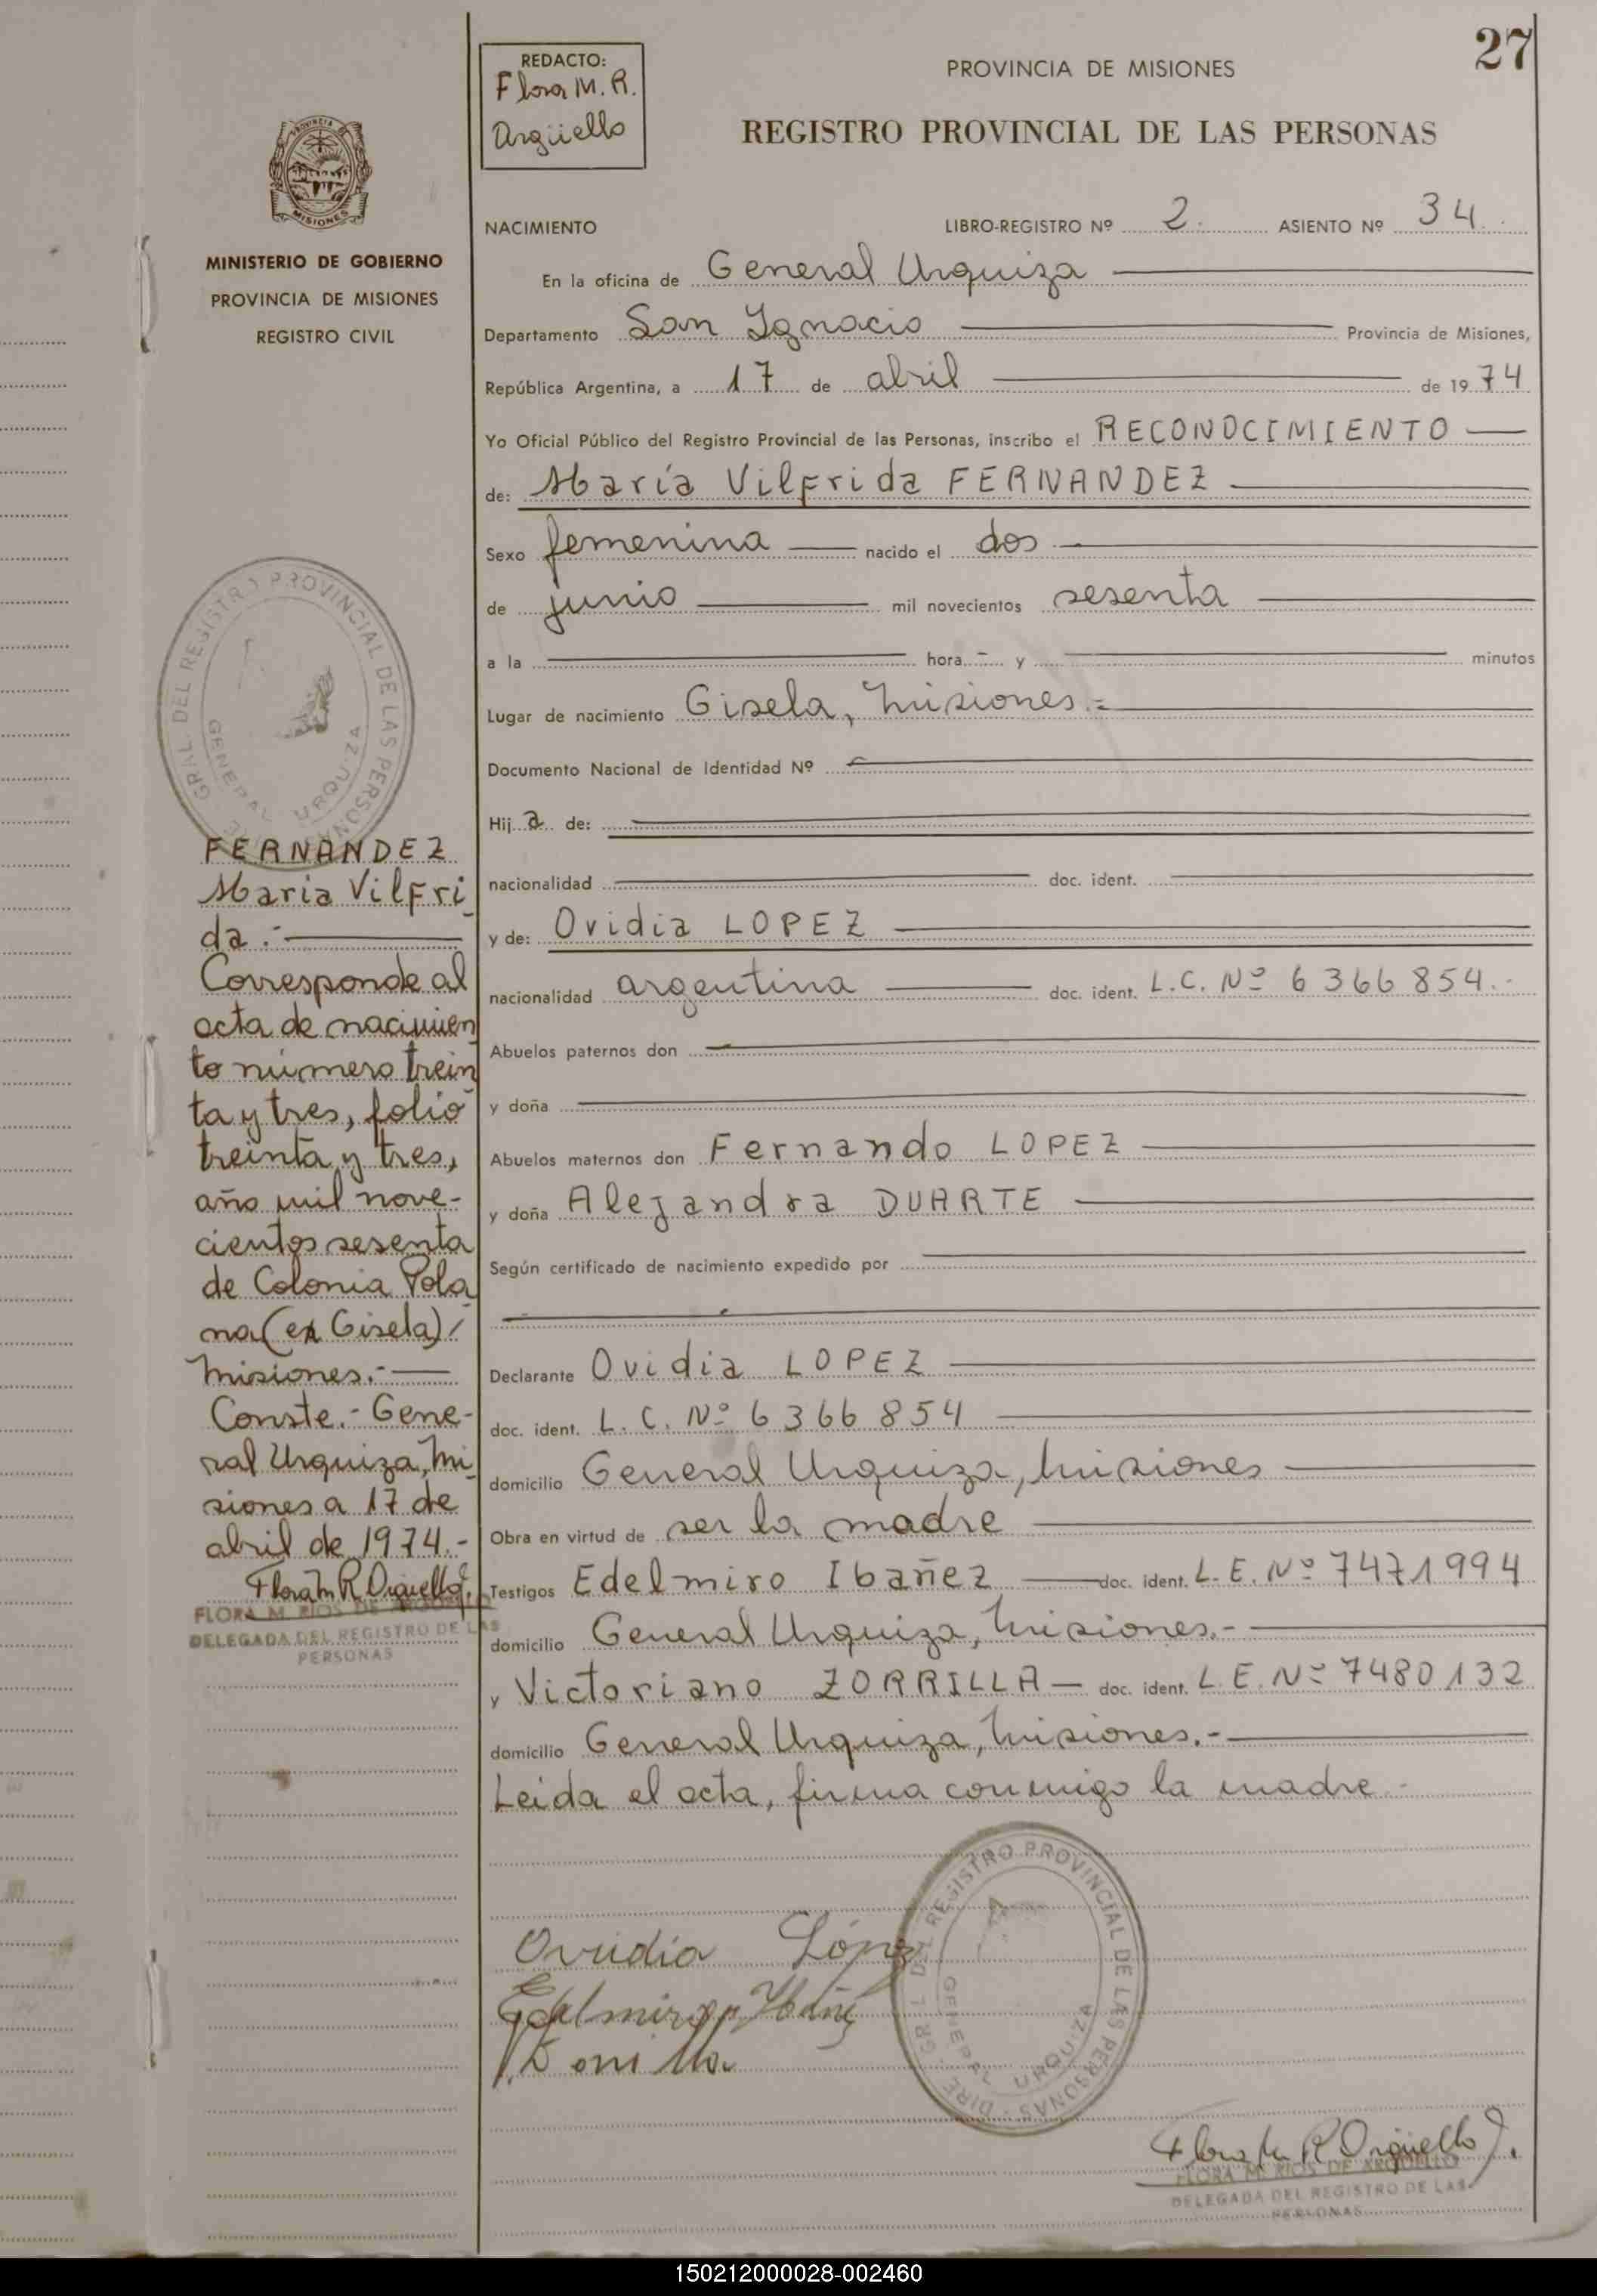 27
REDACTO:
Flora M. R.
Argüello
PROVINCIA DE MISIONES
REGISTRO PROVINCIAL DE LAS PERSONAS
PROVINCIA DE
MISIONES
MINISTERIO DE GOBIERNO
PROVINCIA DE MISIONES
REGISTRO CIVIL
NACIMIENTO LIBRO-REGISTRO Nº 2. ASIENTO Nº 34.
En la oficina de General Urquiza
Departamento San Ignacio Provincia de Misiones,
República Argentina, a 17 de abril de 1974
Yo Oficial Público del Registro Provincial de las Personas, inscribo el RECONOCIMIENTO
de: María Vilfrida FERNANDEZ
Sexo femenina nacido el dos
de junio mil novecientos sesenta
a la hora y minutos
Lugar de nacimiento Gisela, Misiones.=
Documento Nacional de Identidad Nº
Hija de:
nacionalidad doc. ident.
y de: Ovidia LOPEZ
nacionalidad argentina doc. ident. L.C. Nº 6366854.-
Abuelos paternos don
y doña
Abuelos maternos don Fernando LOPEZ
y doña Alejandra DUARTE
Según certificado de nacimiento expedido por
Declarante Ovidia LOPEZ
doc. ident. L.C. Nº 6366854
domicilio General Urquiza, Misiones
Obra en virtud de ser la madre
Testigos Edelmiro Ibañez doc. ident. L.E. Nº 7471994
domicilio General Urquiza, Misiones.-
y Victoriano ZORRILLA doc. ident. L.E. Nº 7480132
domicilio General Urquiza, Misiones.-
Leida el acta, firma conmigo la madre.-
GRAL. DEL REGISTRO PROVINCIAL DE LAS PERSONAS
GENERAL URQUIZA
FERNANDEZ
Maria Vilfri
da.-
Corresponde al
acta de nacimien
to número trein
ta y tres, folio
treinta y tres,
año mil nove-
cientos sesenta
de Colonia Pola
na (ex Gisela)/
Misiones.-
Conste.- Gene-
ral Urquiza, Mi
siones a 17 de
abril de 1974.-
Flora M R Argüello
FLORA M. RIOS DE ARGUELLO
DELEGADA DEL REGISTRO DE LAS
PERSONAS
Ovidia López
Edelmiro Ibáñez
DEL REGISTRO PROVINCIAL DE LAS PERSONAS - DIRE
GENERAL URQUIZA
Flora M R Argüello
FLORA M. RIOS DE ARGUELLO
DELEGADA DEL REGISTRO DE LAS
PERSONAS
150212000028-002460